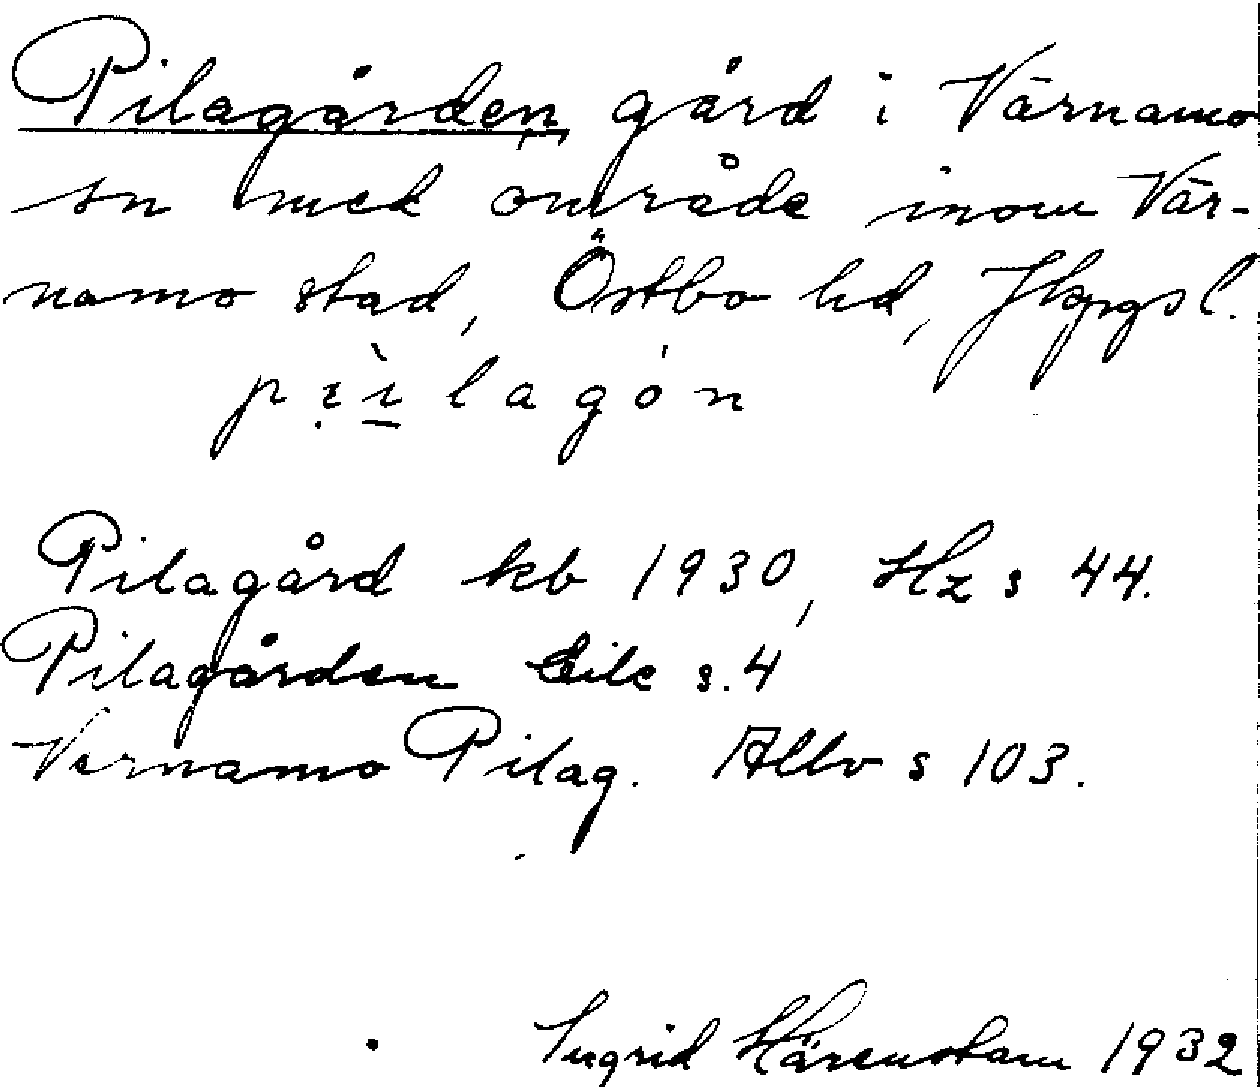 Pilagården gård i Värnamo
sn med område inom Vär-
namo stad, Östbo hd, Jkpgs l.
pìilagó̇n
Pilagård kb 1930, Hz s 44.
Pilagården s. 4
Värnamo Pilag. Allv s 103.
Ingrid Härenstam 1932